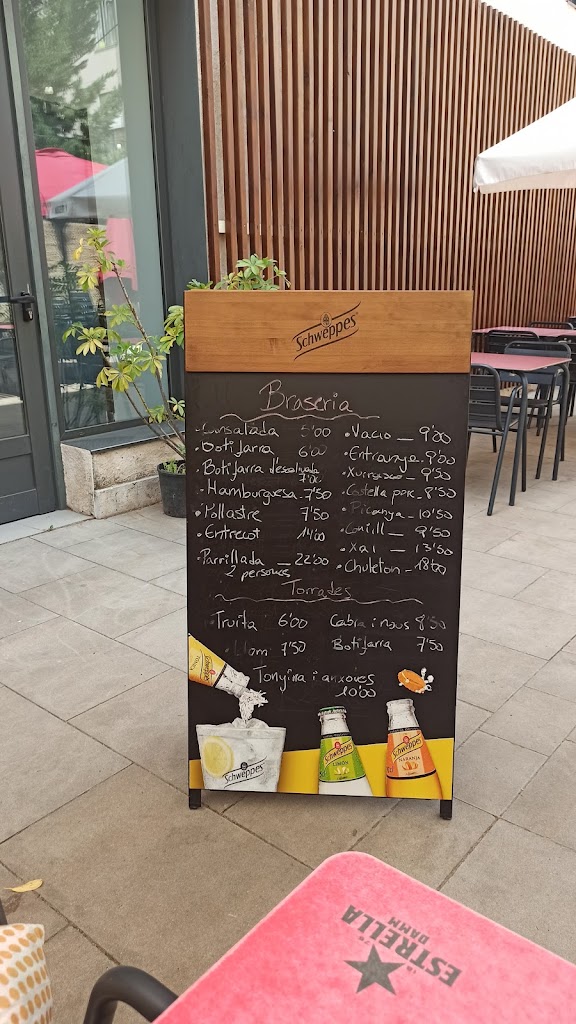 Schweppes
Braseria
Ensalada 5'00
Botifarra 6'00
Botifarra descalivada 7'00
Hamburguesa 7'50
Pollastre 7'50
Entrecot 14'00
Parrillada 22'00
2 persones
Vacio 9'00
Entranya 9'00
Xurrasco 9'50
Costella porc 8'50
Picanya 10'50
Conill 9'50
Xai 13'50
Chuleton 18'00
Torrades
Truita 6'00
Cabra i nous 8'50
Llom 7'50
Botifarra 7'50
Tonyina i anxoves
10'00
Schweppes
Schweppes
Schweppes
LIMÓN
Schweppes
NARANJA
ESTRELLA
DAMM